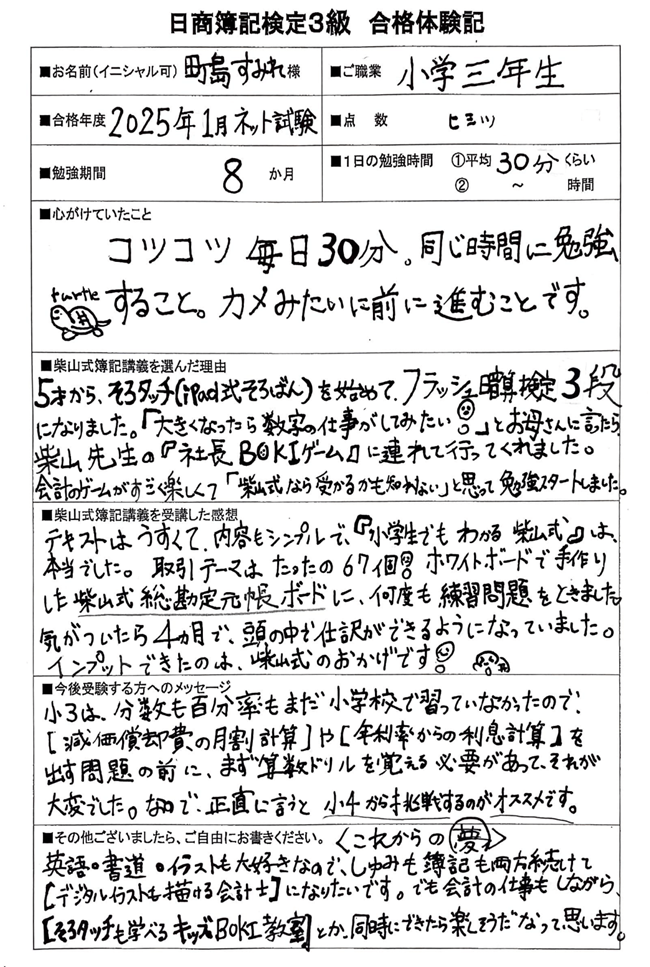 日商簿記検定3級 合格体験記
■お名前(イニシャル可) 町島すみれ様
■ご職業 小学三年生
■合格年度 2025年1月ネット試験
■点 数 ヒミツ
■勉強期間 8 か月
■1日の勉強時間 ①平均 30分 くらい
② ~ 時間
■心がけていたこと
コツコツ 毎日30分。同じ時間に勉強
turtle すること。カメみたいに前に進むことです。
■柴山式簿記講義を選んだ理由
5才から、そろタッチ(iPad式そろばん)を始めて、フラッシュ暗算検定3段
になりました。「大きくなったら数字の仕事がしてみたい!」とお母さんに言ったら
柴山先生の『社長BOKIゲーム』に連れて行ってくれました。
会計のゲームがすごく楽しくて「柴山式なら受かるかも知れない」と思って勉強スタートしました。
■柴山式簿記講義を受講した感想
テキストはうすくて、内容もシンプルで、『小学生でもわかる柴山式』は、
本当でした。取引テーマはたったの67個!! ホワイトボードで手作り
した柴山式総勘定元帳ボードに、何度も練習問題をときました。
気がついたら4カ月で、頭の中で仕訳ができるようになっていました。
インプットできたのは、柴山式のおかげです!
■今後受験する方へのメッセージ
小3は、分数も百分率もまだ小学校で習っていなかったので、
[減価償却費の月割計算]や[年利率からの利息計算]を
出す問題の前に、まず算数ドリルを覚える必要があって、それが
大変でした。なので、正直に言うと 小4から挑戦するのがオススメです。
■その他ございましたら、ご自由にお書きください。 <これからの夢>
英語・書道・イラストも大好きなので、しゅみも簿記も両方続けて
[デジタルイラストも描ける会計士]になりたいです。でも会計の仕事もしながら、
[そろタッチも学べるキッズBOKI教室]とか、同時にできたら楽しそうだなって思います。